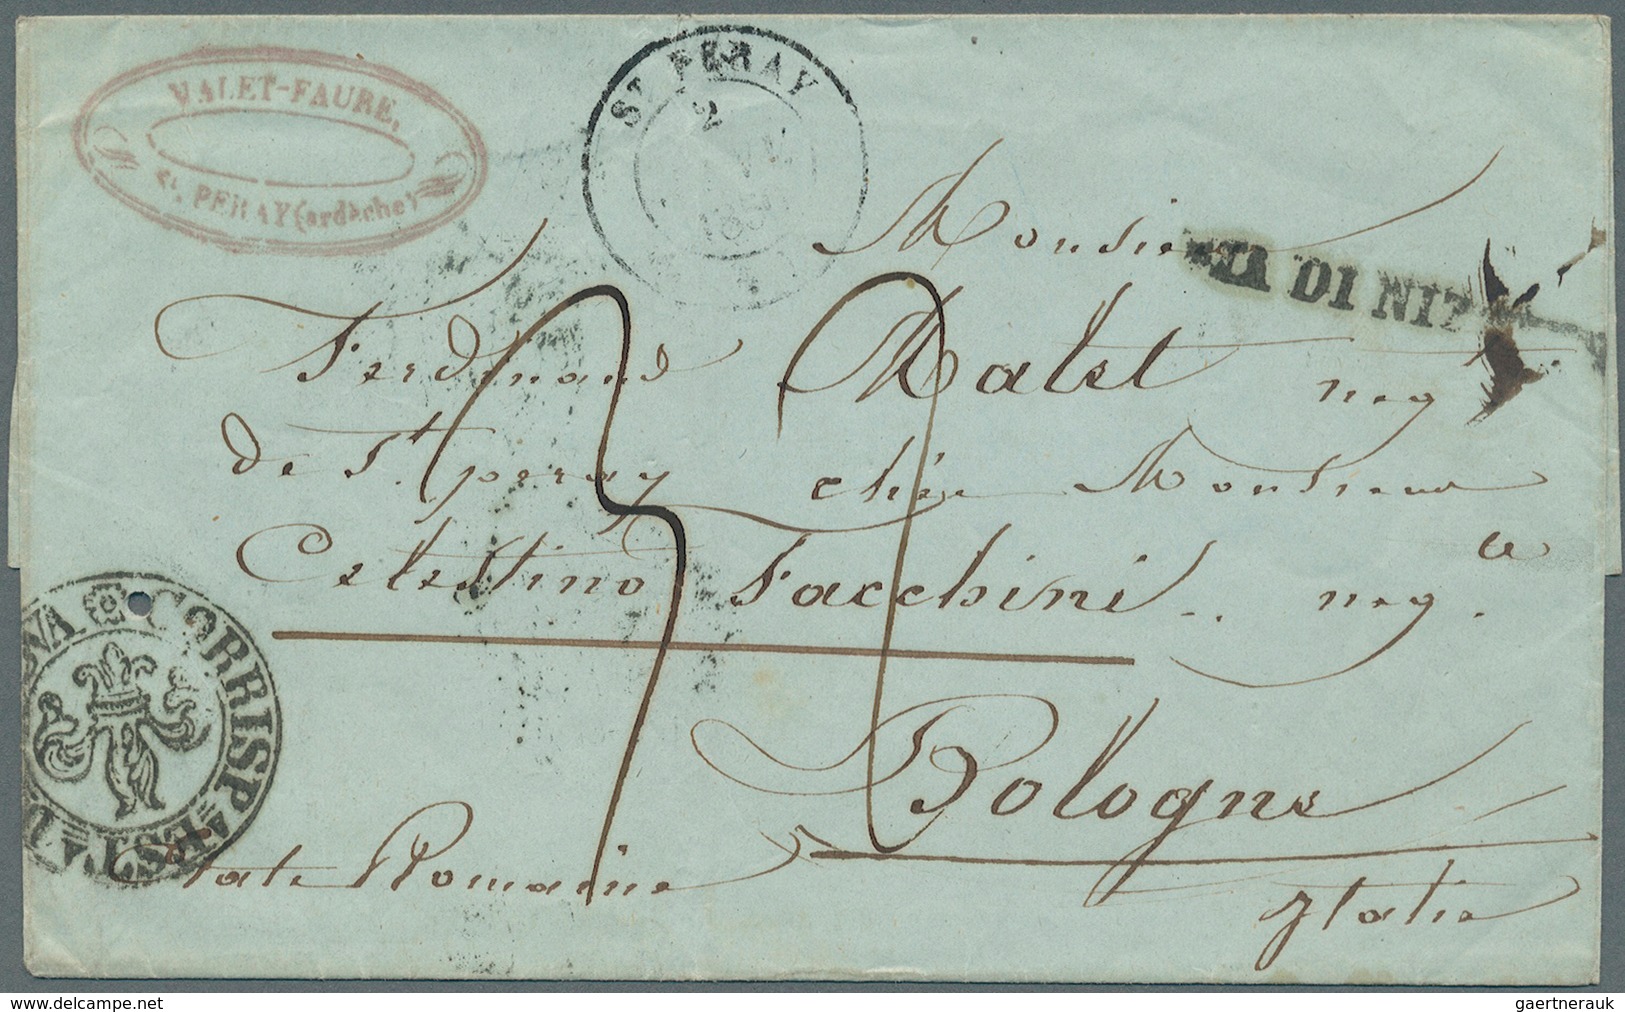 MALET-FAURE,
St. PERAY (ardèche)
ST PERAY
2
185
VIA DI NIZZA
Monsieur
Ferdinand Malet neg
de St. perray chée Monsieur
Celestino Facchini neg
Bologne
état Romaine
Italie
CORRISP ESTA DA GENOVA
delcampe.net
gaertnerauk